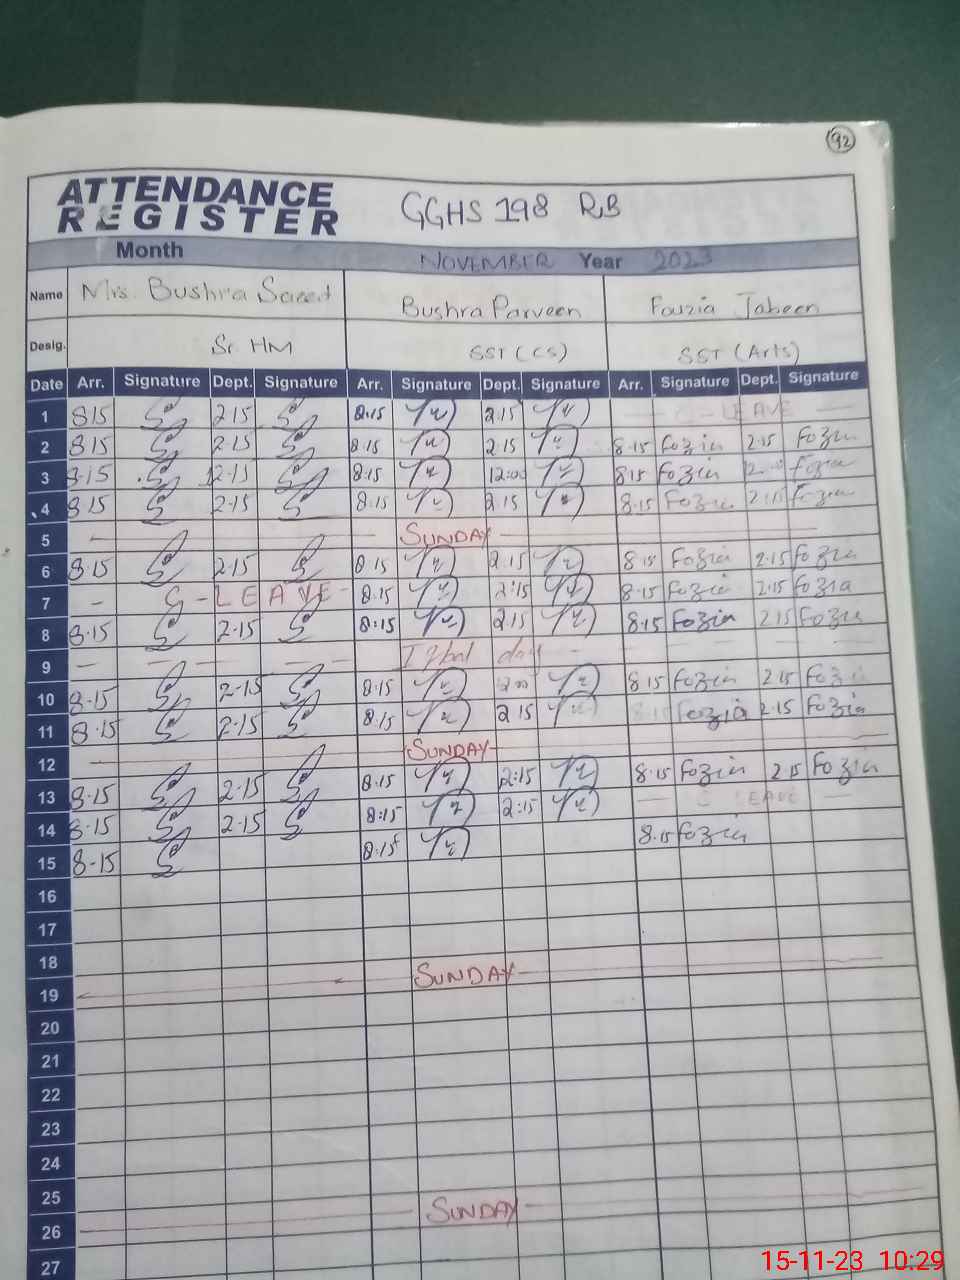 92
ATTENDANCE
REGISTER
GGHS 198 RB
Month NOVEMBER Year 2023
Name Mrs. Bushra Saeed Bushra Parveen Fouzia Jabeen
Desig. Sr. HM SST (CS) SST (Arts)
Date Arr. Signature Dept. Signature Arr. Signature Dept. Signature Arr. Signature Dept. Signature
1 815 2·15 8·15 2·15 C - LEAVE
2 815 2·15 8·15 2·15 8·15 Fozia 2·15 Fozia
3 8·15 12·15 8·15 12:00 8·15 Fozia Fozia
4 815 2·15 8·15 2·15 8·15 Fozia 2·15 Fozia
5 SUNDAY
6 8·15 2·15 8·15 2:15 8·15 Fozia 2·15 Fozia
7 - C - LEAVE - 8·15 2:15 8·15 Fozia 2·15 Fozia
8 8·15 2·15 8:15 2·15 8·15 Fozia 2·15 Fozia
9 Iqbal day
10 8·15 2·15 8·15 8·15 Fozia 2·15 Fozia
11 8·15 2·15 8·15 2·15 Fozia 2·15 Fozia
12 SUNDAY
13 8·15 2·15 8·15 2:15 8·15 Fozia 2·15 Fozia
14 8·15 2·15 8:15 2:15 C LEAVE
15 8-15 8·15 8·15 Fozia
16
17
18
19 SUNDAY
20
21
22
23
24
25
26 SUNDAY
27
15-11-23 10:29